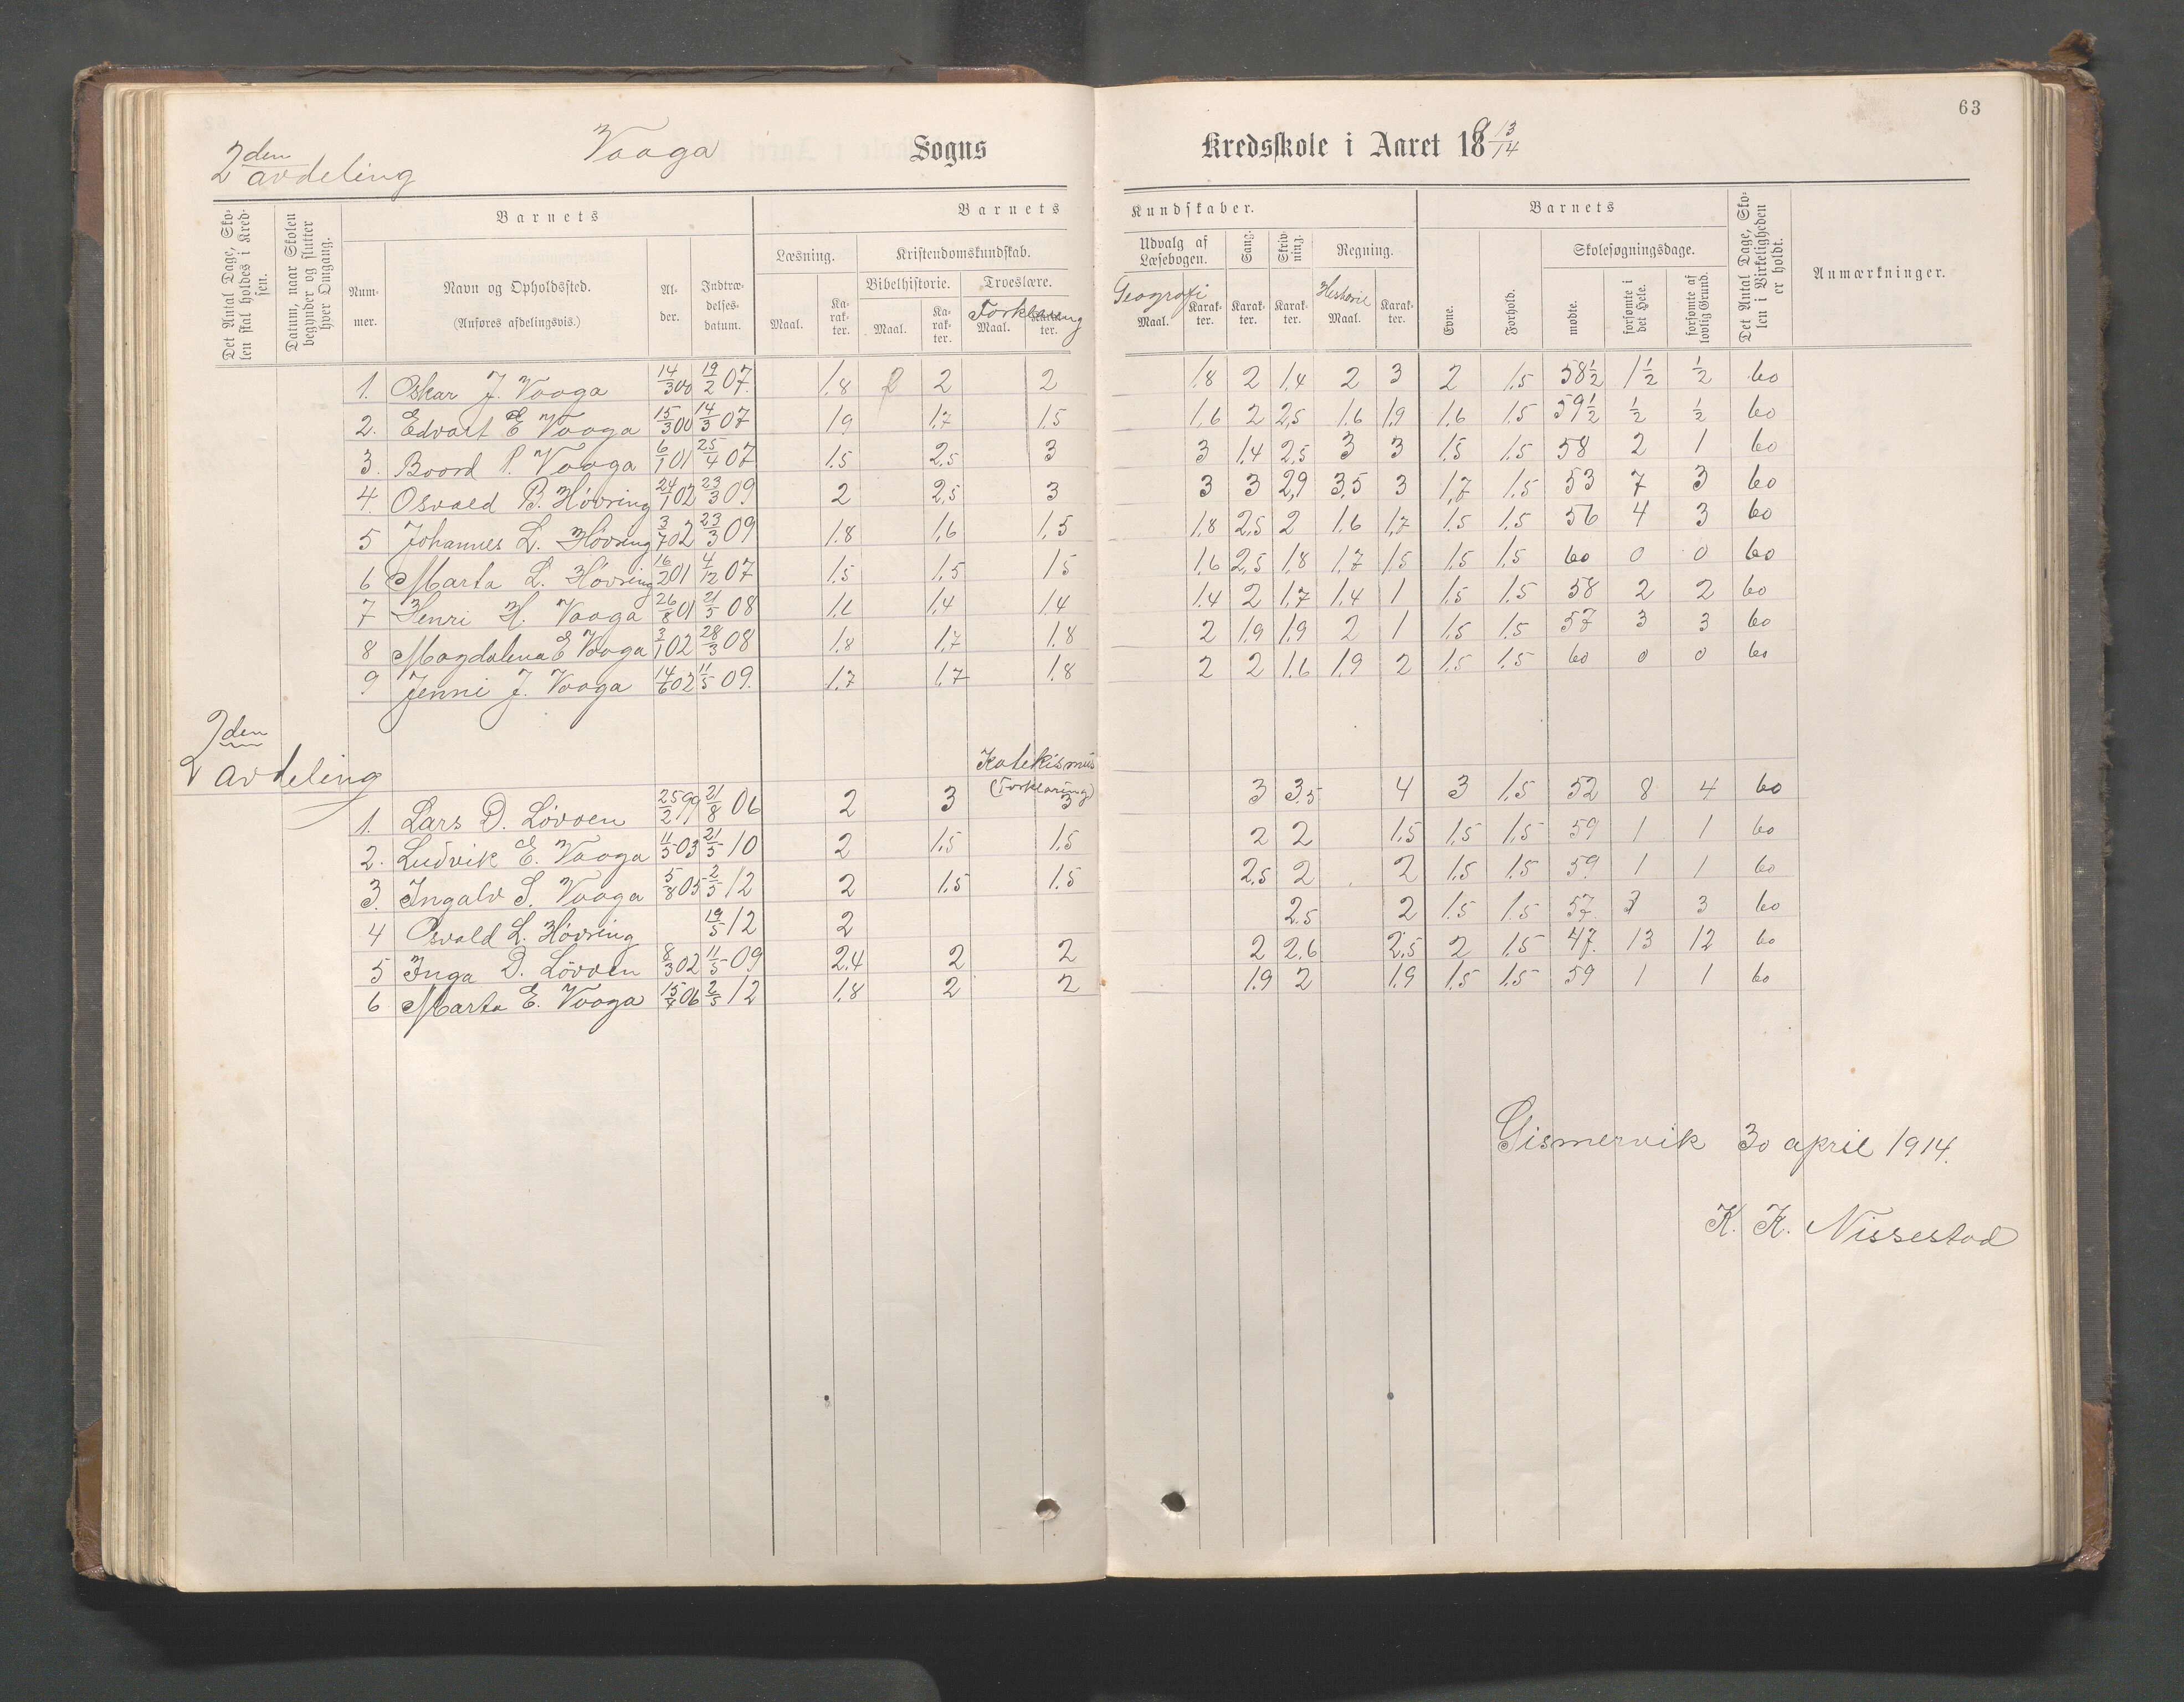 63
2den avdeling Vaaga Sogns Kredsskole i Aaret 189 13/14
Det Antal Dage, Skolen skal holdes i Kredsen.
Datum, naar Skolen begynder og slutter hver Omgang.
Barnets
Nummer.
Navn og Opholdssted.
(Anføres afdelingsvis.)
Alder.
Indtrædelsesdatum.
Barnets Kundskaber.
Læsning.
Maal. Karakter.
Kristendomskundskab.
Bibelhistorie.
Maal. Karakter.
Troeslære.
Forklaring
Maal. Karakter.
Udvalg af Læsebogen.
Geografi
Maal. Karakter.
Sang.
Karakter.
Skrivning.
Karakter.
Regning.
Historie
Maal. Karakter.
Barnets
Evne.
Forhold.
Skolesøgningsdage.
mødte.
forsømte i det Hele.
forsømte af lovlig Grund.
Det Antal Dage, Skolen i Virkeligheden er holdt.
Anmærkninger.
1. Oskar J. Vaaga 14/3 00 19/2 07. 1.8 2 2 1.8 2 1,4 2 3 2 1.5 58½ 1½ ½ 60
2. Edvart E Vaaga 15/3 00 14/3 07 1.9 1.7 1.5 1,6 2 2,5 1.6 1,9 1.6 1.5 59½ ½ ½ 60
3. Baard P. Vaaga 6/1 01 25/4 07 1.5 2,5 3 3 1.4 2,5 3 3 1.5 1.5 58 2 1 60
4. Osvald B. Hövring 24/1 02 23/3 09 2 2,5 3 3 3 2,9 3,5 3 1,7 1.5 53 7 3 60
5 Johannes L. Hövring 3/7 02 23/3 09 1.8 1,6 1,5 1,8 2,5 2 1.6 1,7 1.5 1,5 56 4 3 60
6 Marta L. Hövring 16/2 01 4/12 07 1,5 1,5 1.5 1.6 2,5 1.8 1.7 1.5 1.5 1.5 60 0 0 60
7 Henri H. Vaaga 26/8 01 21/5 08 1,6 1,4 1.4 1.4 2 1,7 1.4 1 1.5 1.5 58 2 2 60
8 Magdalena E Vaaga 3/1 02 28/3 08 1.8 1,7 1.8 2 1.9 1.9 2 1 1.5 1.5 57 3 3 60
9 Jenni J. Vaaga 14/6 02 11/5 09. 1.7 1.7 1.8 2 2 1.6 1.9 2 1.5 1.5 60 0 0 60
2den avdeling
Katekismus
(Forklaring)
1. Lars D. Lövven 25/2 99 21/8 06 2 3 3 3 3.5 4 3 1.5 52 8 4 60
2. Ludvik E. Vaaga 11/5 03 21/5 10 2 1.5 1.5 2 2 1.5 1.5 1.5 59 1 1 60
3. Ingalv S. Vaaga 5/8 05 2/5 12 2 1.5 1.5 2,5 2 2 1.5 1.5 59 1 1 60
4 Osvald L. Hövring 19/5 12 2 2.5 2 1.5 1.5 57 3 3 60
5 Inga D. Lövven 8/3 02 11/5 09 2.4 2 2 2 2.6 2.5 2 1.5 47. 13 12 60
6 Marta E. Vaaga 15/4 06 2/5 12 1.8 2 2 1.9 2 1.9 1.5 1.5 59 1 1 60
Gismervik 30 april 1914.
K. K. Nissestad